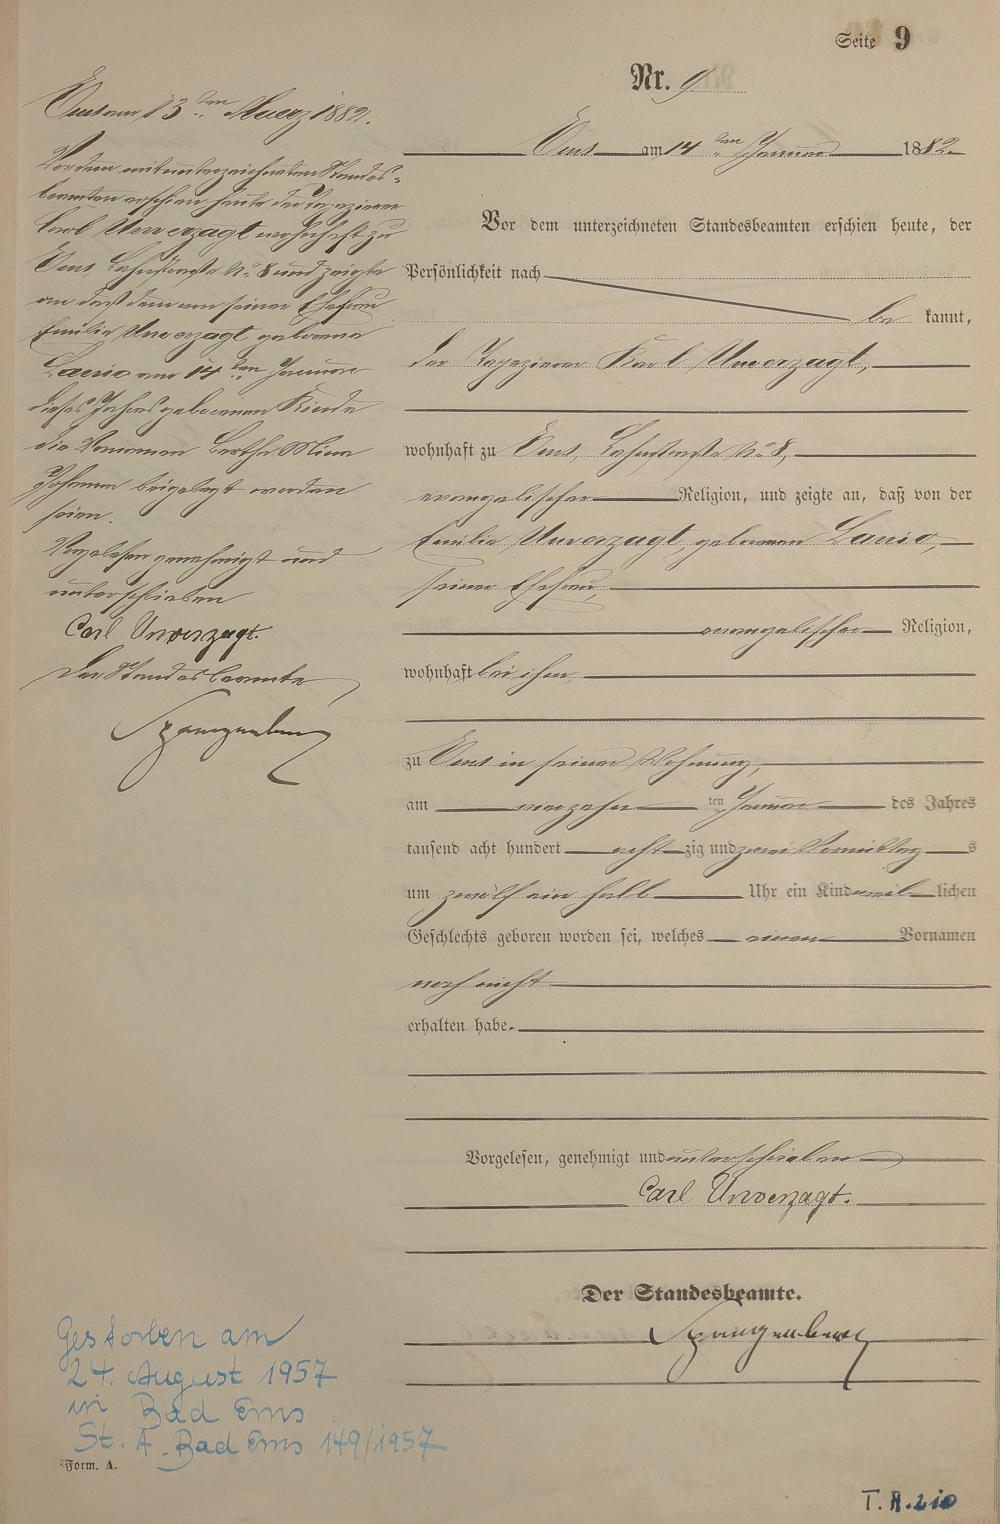 Seite 9
Nr. 9
Ems am 14 ten Januar 1882
Vor dem unterzeichneten Standesbeamten erschien heute, der
Persönlichkeit nach
be kannt,
der Tapezierer Karl Unverzagt,
wohnhaft zu Ems, Lahnstraße No 8,
evangelischer Religion, und zeigte an, daß von der
Emilie Unverzagt, geborenen Lanio,
seiner Ehefrau,
evangelischer Religion,
wohnhaft bei ihm,
zu Ems in seiner Wohnung,
am vierzehn ten Januar des Jahres
tausend acht hundert acht zig und zwei Vormittag s
um zwölf ein halb Uhr ein Kind weib lichen
Geschlechts geboren worden sei, welches einen Vornamen
noch nicht
erhalten habe.
Vorgelesen, genehmigt und unterschrieben
Carl Unverzagt.
Der Standesbeamte.
Spangenberg
Ems am 13 ten Maerz 1882.
Vor dem mitunterzeichneten Standes-
beamten erschien heute der Tapezierer
Carl Unverzagt wohnhaft zu
Ems, Lahnstraße No 8 und zeigte
an daß dem von seiner Ehefrau
Emilie Unverzagt geborene
Lanio am 14 ten Januar
dieses Jahres geborenen Kinde
die Vornamen Bertha Mina
Johanna beigelegt worden
seien.
Vorgelesen genehmigt und
unterschrieben
Carl Unverzagt.
Der Standesbeamte
Spangenberg
Gestorben am
24. August 1957
in Bad Ems
St. A. Bad Ems 149/1957
Form. A.